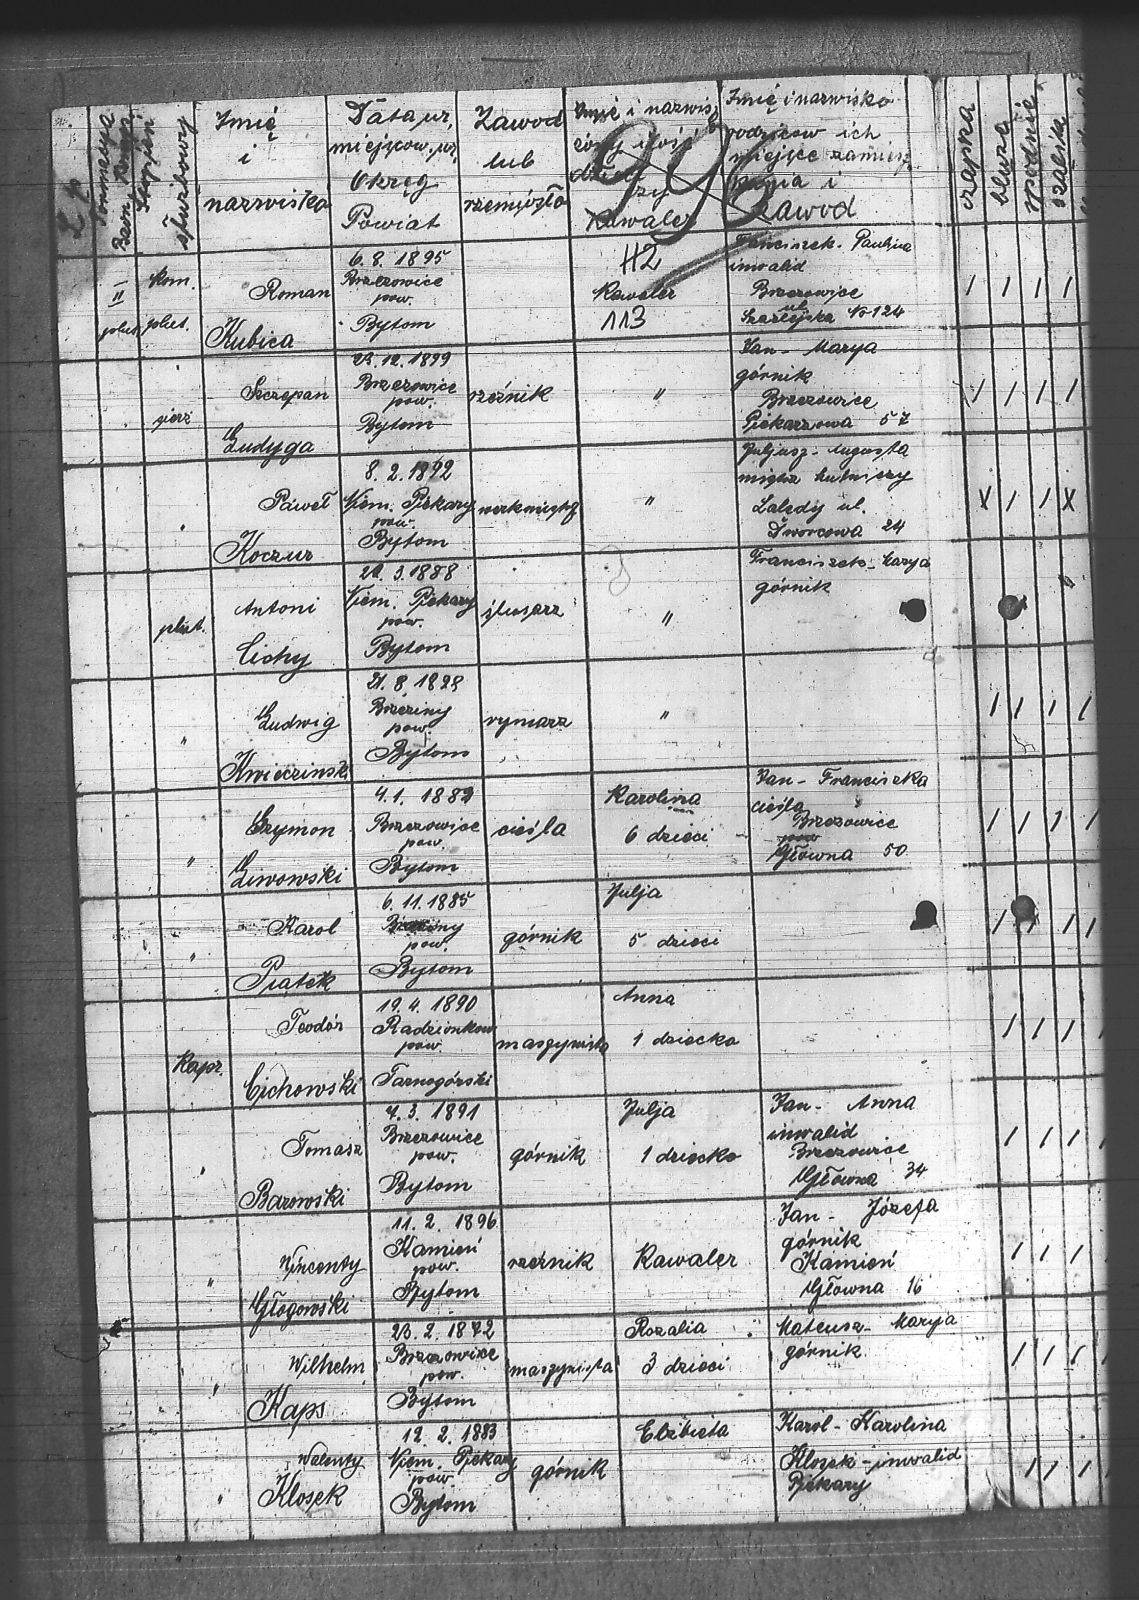 Imię
i
nazwiska
Data, ur,
miejscow. ur,
Okręg
Powiat
Zawod
lub
rzemiosło
Imię i nazwis.
żony ilość
dzieci
czy
Kawaler
Imię i nazwisko
rodziców ich
miejsce zamiesz
kania i
zawod
czapka
bluza
spodnie
996
I
II
plut.
kom.
plut.
Roman
Kubica
6. 8. 1895
Brzezowice
pow.
Bytom
H2
Kawaler
113
Franciszek - Paulina
inwalid
Brzezowice
ul.
Szarlejska № 124
sierż
Szczepan
Ludyga
23. 12. 1899
Brzezowice
pow.
Bytom
rzeźnik
"
Jan - Marya
górnik
Brzezowice
Piekarzowa 57
"
Paweł
Koczur
8. 2. 1892
Niem. Piekary
pow.
Bytom
"
Juljusz - Augusta
hutniczy
ul.
Dworcowa 24
plut.
Antoni
Cichy
3. 1888
Niem. Piekary
pow.
Bytom
ślusarz
"
Franciszek - Marya
górnik
"
Ludwig
21. 8. 1898
Brzeziny
pow.
Bytom
rymarz
"
"
Szymon
Liwowski
4. 1. 1882
Brzezowice
pow.
Bytom
cieśla
Karolina
6 dzieci
Jan - Franciszka
cieśla
Brzezowice
pow
Główna 50
"
Karol
Piątek
6. 11. 1885
Brzeziny
pow.
Bytom
górnik
Julja
5 dzieci
Kapr.
Teodór
Cichowski
19. 4. 1890
Radzionkow
pow.
Tarnogórski
maszynista
Anna
1 dziecko
"
Tomasz
Barowski
4. 3. 1891
Brzezowice
pow.
Bytom
górnik
Julja
1 dziecko
Jan - Anna
inwalid
Brzezowice
Główna 34
"
Wincenty
Głogowski
11. 2. 1896
Kamień
pow.
Bytom
rzeźnik
Kawaler
Jan - Józefa
górnik
Kamień
Główna 16
"
Wilhelm
Kaps
23. 2. 1872
Brzezowice
pow.
Bytom
maszynista
Rozalia
3 dzieci
Mateusz - Marya
górnik
"
Walenty
Klosek
12. 2. 1883
Niem. Piekary
pow.
Bytom
górnik
Elżbieta
Karol - Karolina
Klosek - inwalid
Piekary